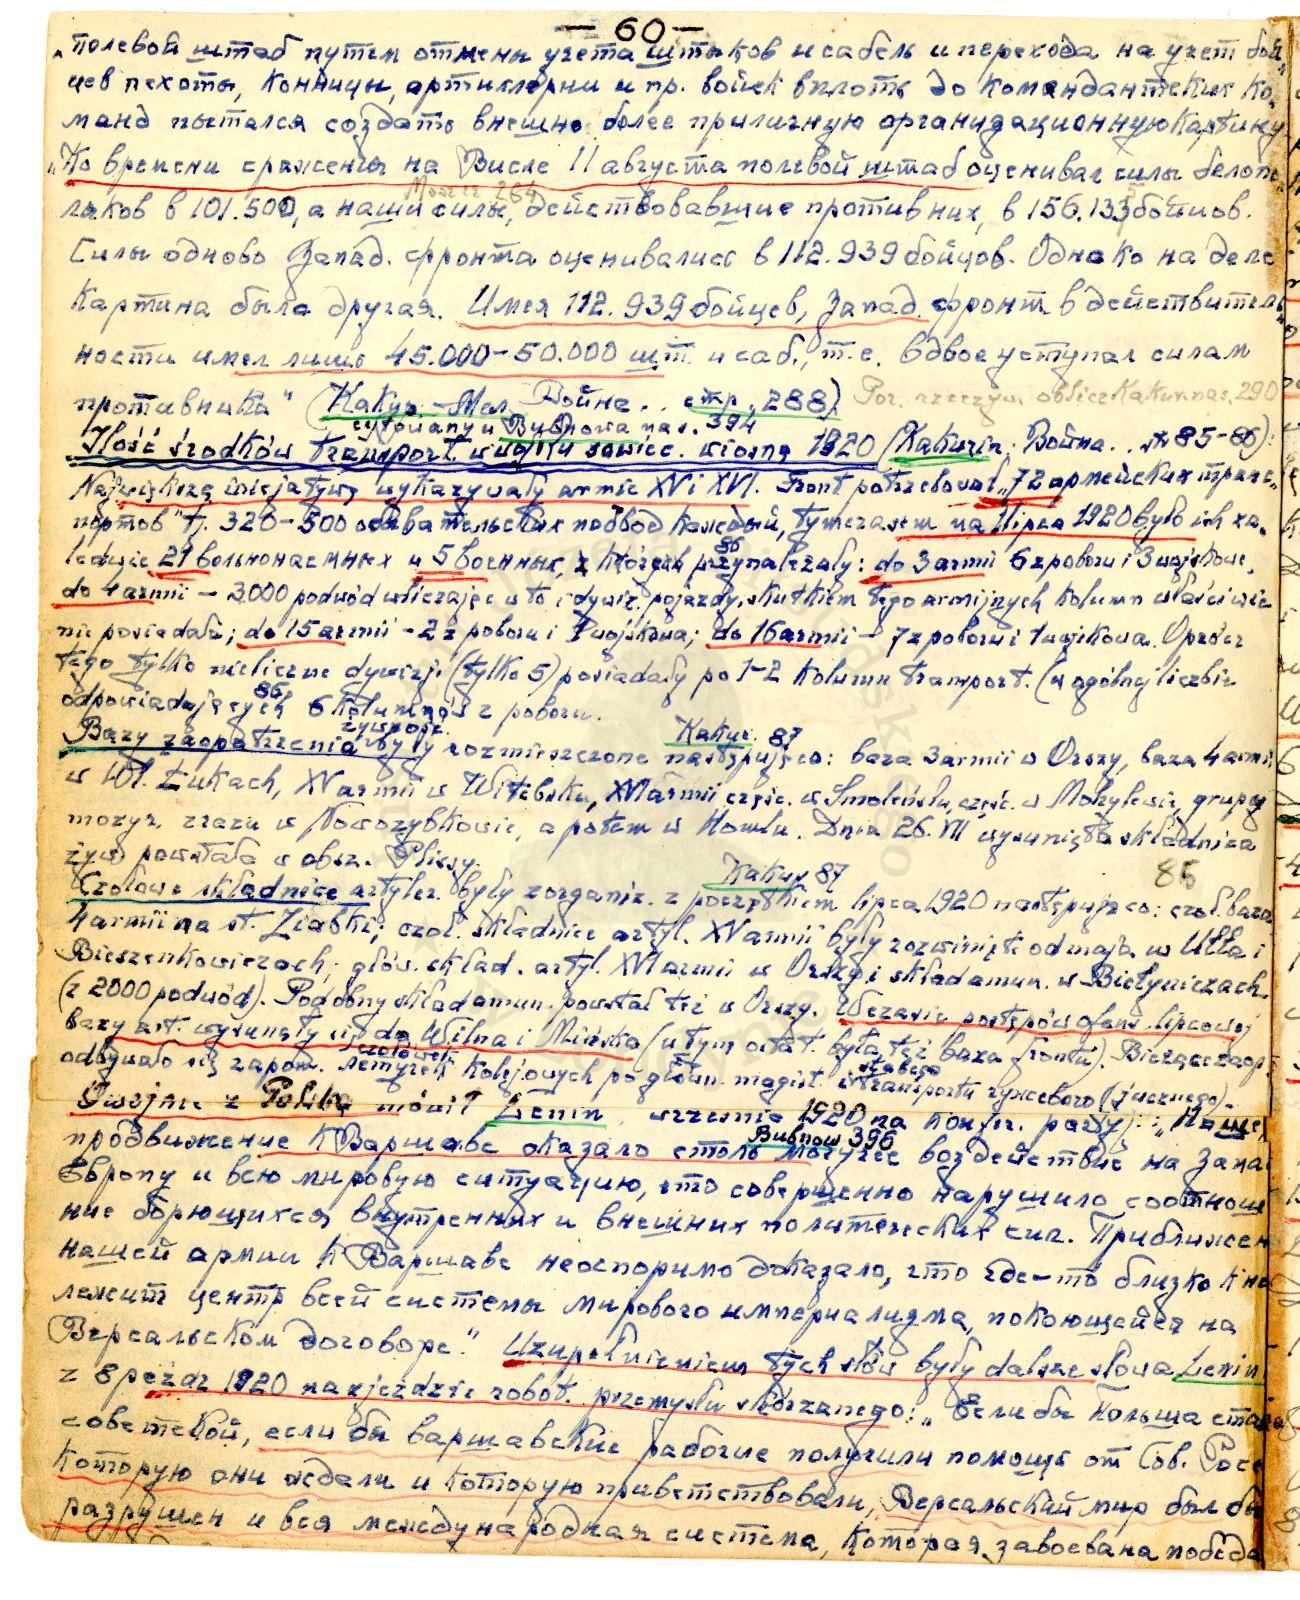 — 60 —
„Полевой штаб путем отмены учета штыков и сабель и перехода на учет бой-
цев пехоты, конницы, артиллерии и пр. войск вплоть до комендантских ко-
манд пытался создать внешне более приличную организационную картину
„Ко времени сражения на Висле 11 августа полевой штаб оценивал силы белопо-
ляков в 101.500, а наши силы, действовавшие против них, в 156.133 бойцов.
Силы одного Запад. фронта оценивались в 112.939 бойцов. Однако на деле
картина была другая. Имея 112.939 бойцев, Запад. фронт в действитель-
ности имел лишь 45.000–50.000 шт. и саб., т.е. вдвое уступал силам
противника" (Какур. Война.. стр. 288). Por. rzeczyw. oblicz. Kakur. na s. 290
cytowany u Bubnowa na s. 394
Ilość środków transport. wojsku sowiec. wiosną 1920 (Kakurin: Война.. 85–86):
Największą inicjatywę wykazywały armie XV i XVI. Front potrzebował „72 армейских транс-
портов" tj. 320–500 обывательских подвод каждый, tymczasem na lipca 1920 było ich za-
ledwie 29 вольнонаемных и 5 военных, z których przynależały: do 3 armii 6 z poboru i 3 wojskowe,
86
do 4 armii – 3.000 podwód wliczając w to i dywiz. pojazdy, skutkiem tego armijnych kolumn właściwie
nie posiadała; do 15 armii – 2 z poboru i wojskowa; do 16 armii – 7 z poboru i 1 wojskowa. Oprócz
tego tylko nieliczne dywizje (tylko 5) posiadały po 1–2 kolumn transport. (w ogólnej liczbie
odpowiadających 6 kolumnom z poboru.
86
Bazy zaopatrzenia żywnośc. były rozmieszczone następująco: baza 3 armii w Orszy, baza 4 armii
Kakur. 87
w Wł. Łukach, XV armii w Witebsku, XVI armii częśc. w Smoleńsku, częśc. w Mohylewie, grupy
mozyr. zrazu w Nowozybkowie, a potem w Homlu. Dnia 26.VII wysunięta składnica
żyw. powstała w obsz. Plissy.
Kakur 87
85
Czołowe składnice artyler. były zorganiz. z początkiem lipca 1920 następująco: czoł. baza
4 armii na st. Ziabki; czoł. składnice artyl. XV armii były rozwinięte od maja w Ułła i
Bieszenkowiczach; głów. skład. artyl. XVI armii w Orszy i skład amun. w Biełyniczach
(z 2000 podwód). Podobny skład amun. powstał też w Orszy. W czasie postępów ofens. lipcowej
bazy art. wysunęły się do Wilna i Mińska (w tym ostat. była też baza frontu). Bieżące zaop.
odbywało się zapom. czołówek kolejowych po główn. magist. i słabego transportu гужевого (jucznego).
O wojnie z Polską mówił Lenin września 1920 na konfer. partyj.: „Наше
Bubnow 396
продвижение к Варшаве оказало столь могучее воздействие на Запад.
Европу и всю мировую ситуацию, что совершенно нарушило соотноше-
ние борющихся внутренних и внешних политических сил. Приближен.
нашей армии к Варшаве неоспоримо доказало, что где-то близко к не
лежит центр всей системы мирового империализма, покоющейся на
Версальском договоре." Uzupełnieniem tych słów były dalsze słowa Lenin
z 8 paźdz 1920 na zjeździe robot. przemysłu skórzanego: „Если бы Польша стала
советской, если бы варшавские рабочие получили помощь от Сов. Росс
которую они ждали и которую приветствовали, Версальский мир был бы
разрушен и вся международная система, которая завоевана победа